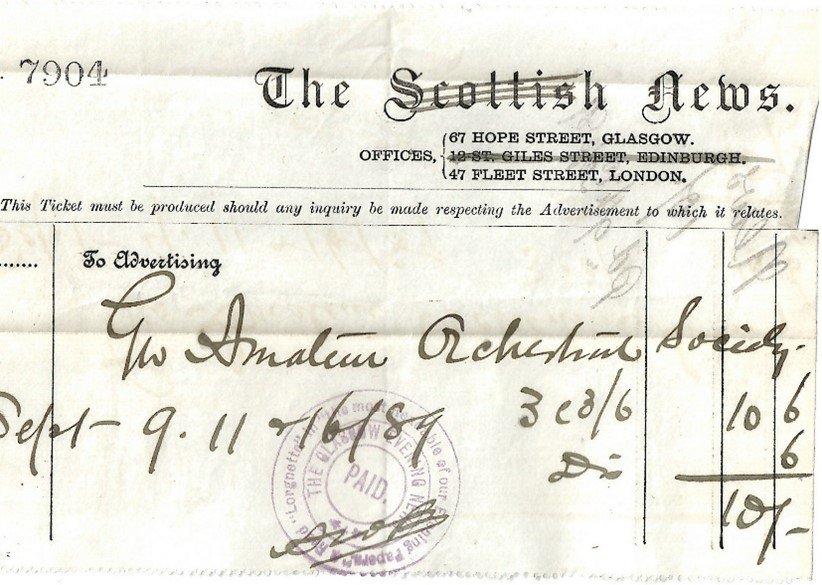 7904
The Scottish News.
OFFICES,
67 HOPE STREET, GLASGOW.
12 ST. GILES STREET, EDINBURGH.
47 FLEET STREET, LONDON.
This Ticket must be produced should any inquiry be made respecting the Advertisement to which it relates.
To Advertising
Gw Amateur Orchestral Society.
Sept 9. 11 /89 3 c 3/6 10 6
Dis 6
10/-
THE GLASGOW EVENING
PAID.
"Lorgnette" most of our Evening Papers."